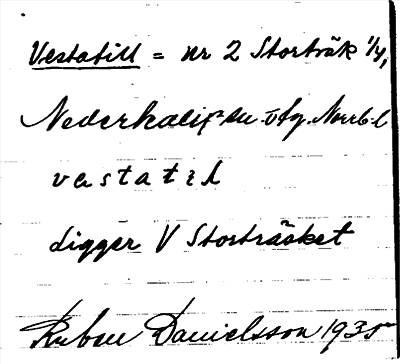 Vestatill = nr 2 Storträsk 1/4,
Nederkalix sn. Norrb. l
vastatel
ligger V Storträsket
Ruben Danielsson 1935